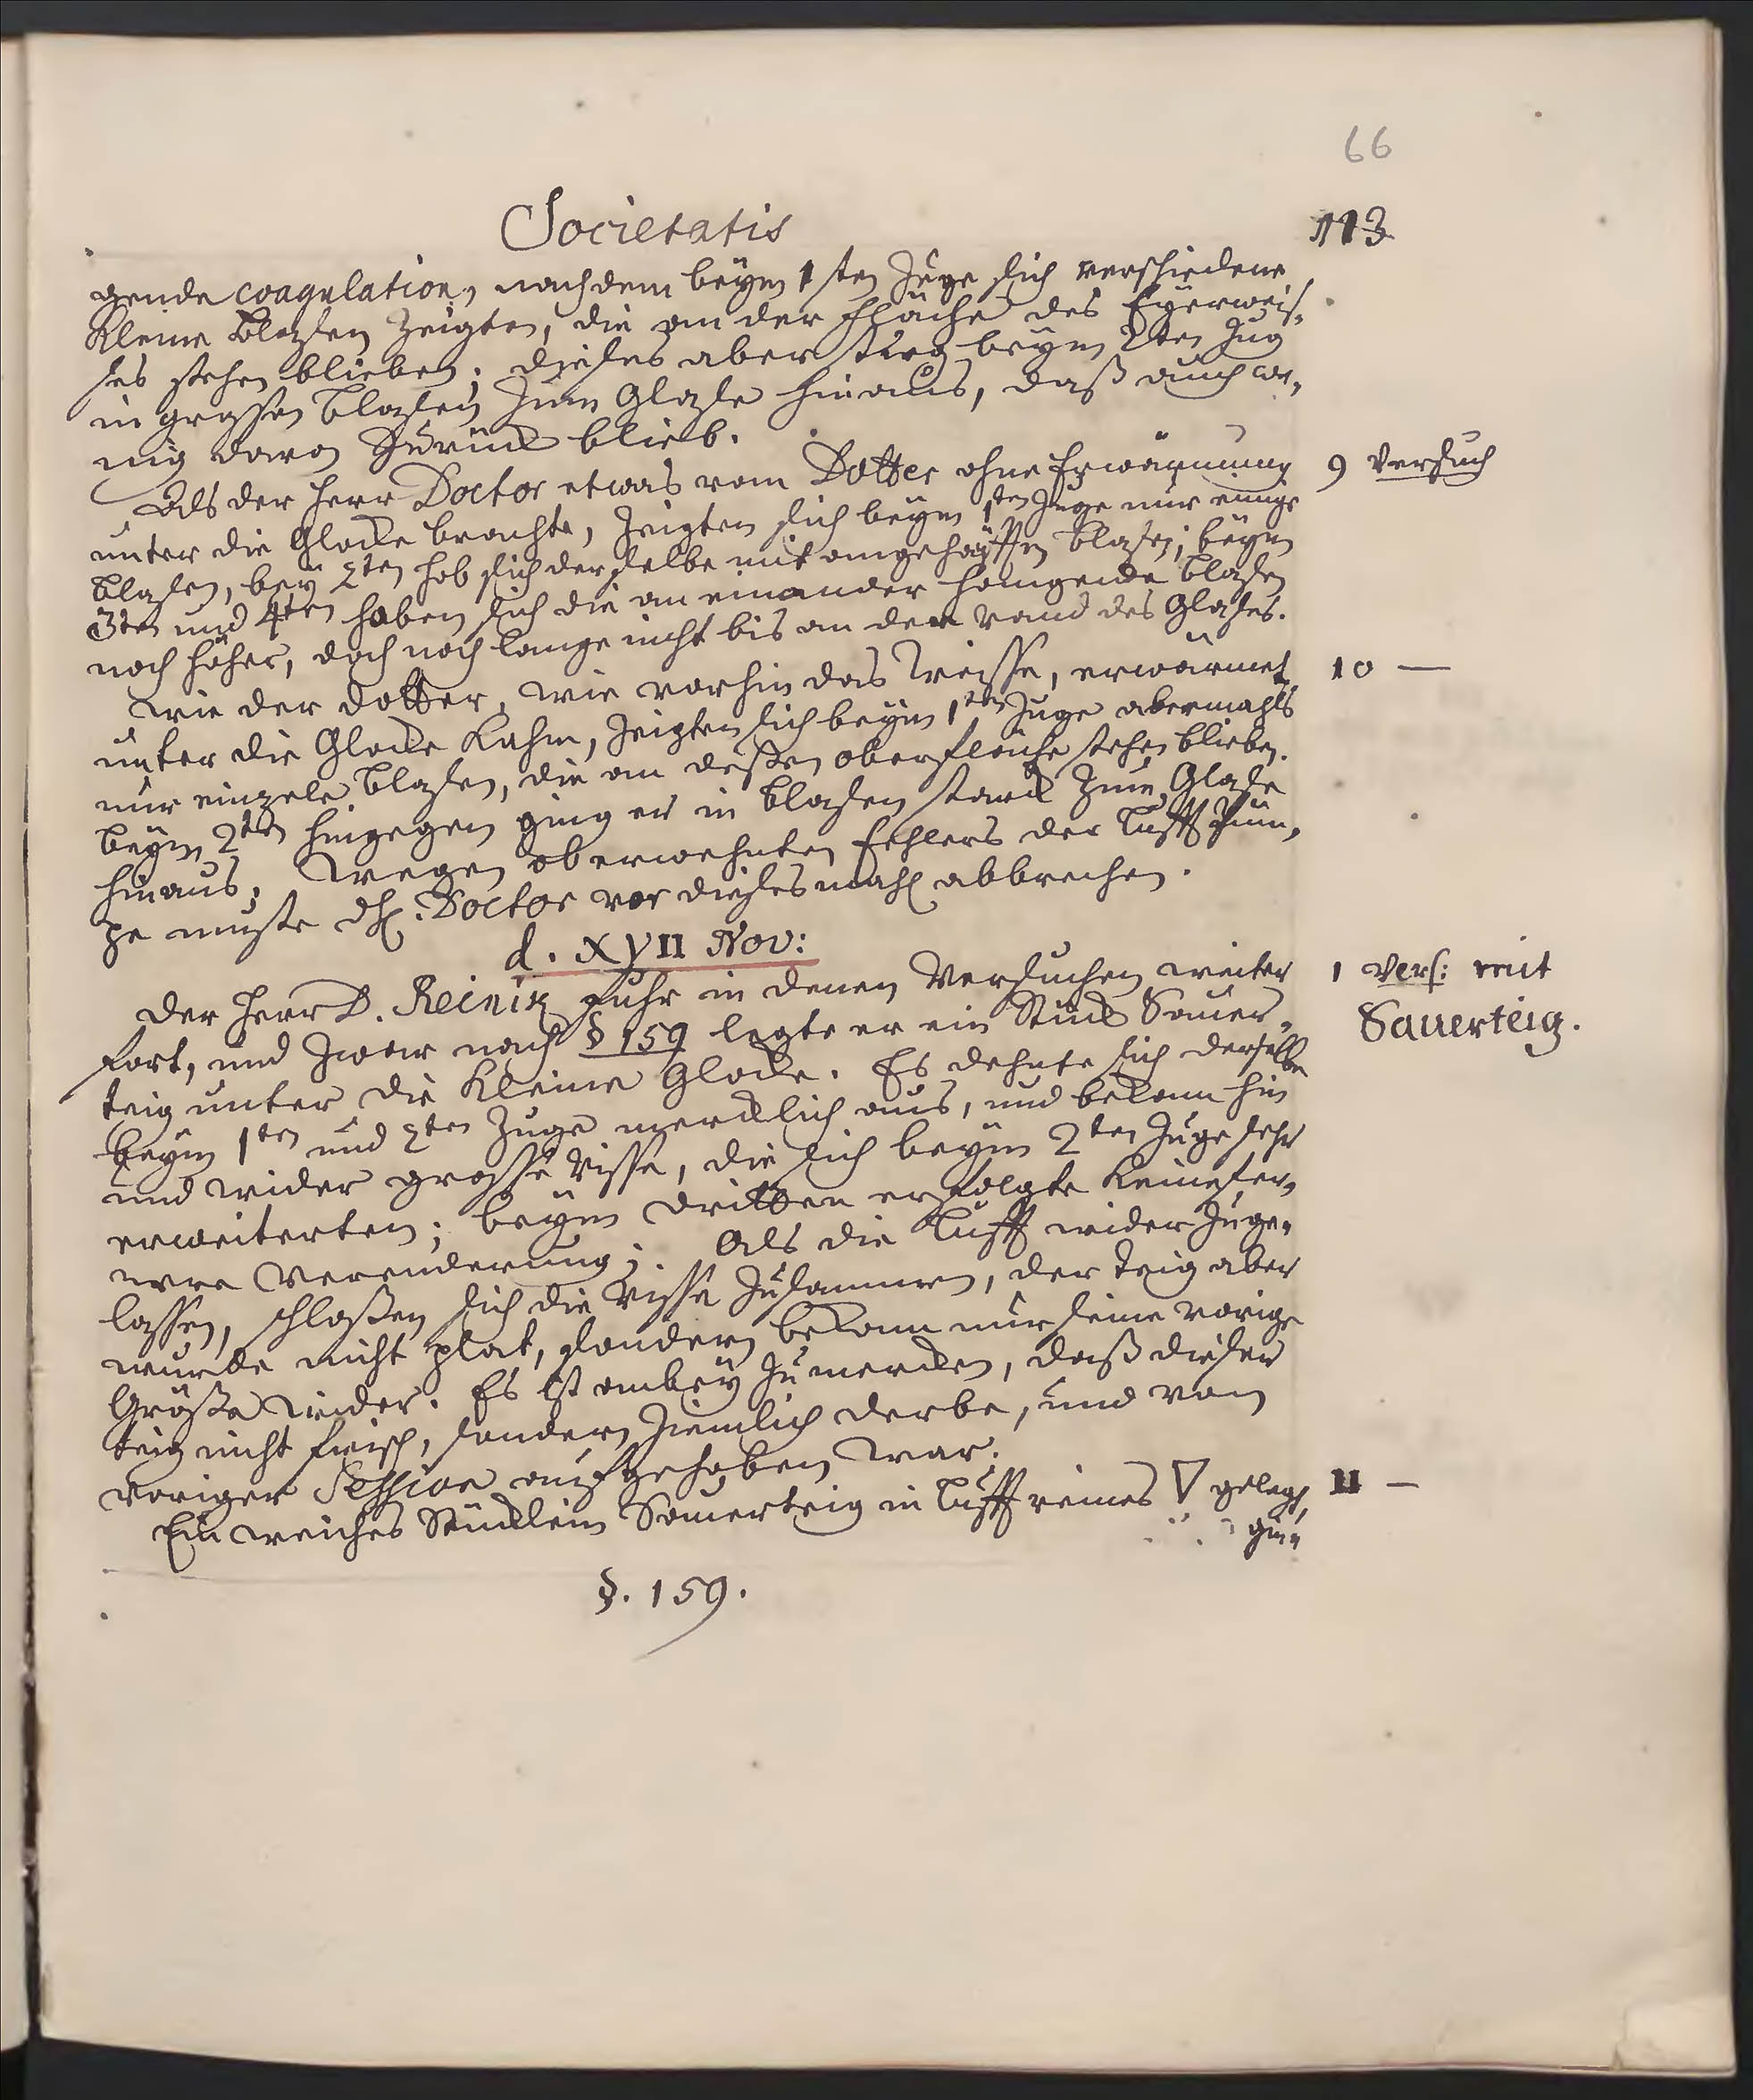 66
Societatis
113
gende coagulation, nachdem beym 1sten Zuge sich verschiedene
kleine Blasen zeigten, die an der Fläche des Eyerweis-
ses stehen blieben; dieses aber stieg beym 2ten Zug
in grossen Blasen zum Glase hinaus, daß auch we-
nig davon zurück blieb.
Als der Herr Doctor etwas vom Dotter ohne Erwärmung
9 Versuch
unter die Glocke brachte, zeigten sich beym 1sten Zuge nur einige
Blasen, bey 2ten hob sich derselbe mit angehäufften Blasen; beym
3ten und 4ten hoben sich die an einander hangende Blasen
noch höher, doch noch lange nicht bis an den rand des Glases.
Wie der Dotter, wie vorhin das Weisse, erwärmet
10 —
unter die Glocke kahm, zeigten sich beym 1sten Zuge abermahls
nur einzele Blasen, die an deßen oberfläche stehen blieben.
beym 2ten hingegen ging er in Blasen starck zum Glase
hinaus; Wegen oberwehnten Fehlers der Lufft Pum-
pe muste dH. Doctor vor dieses mahl abbrechen.
d. XVII Nov:
Der Herr D. Reinik fuhr in denen Versuchen weiter
1 Vers: mit
fort, und zwar nach § 159 legte er ein Stück Sauer-
Sauerteig.
teig unter die kleine Glocke. Es dehnte sich derselbe
beym 1ten und 2ten Zuge mercklich aus, und bekam hin
und wider grosse Risse, die sich beym 2ten Zuge sehr
erweiterten; beym dritten erfolgte keine fer-
nere Verenderung; Als die Lufft wider zuge-
lassen, schloßen sich die Risse zusammen, der Teig aber
wurde nicht plat, sondern bekam nur seine vorige
Größe wider. Es ist anbey zu mercken, daß dieser
Teig nicht frisch, sondern ziemlich derbe, und von
voriger Session aufgehoben war.
Ein weiches Stücklein Sauerteig in Lufft reines ▽ gelegt,
II —
gin-
§. 159.